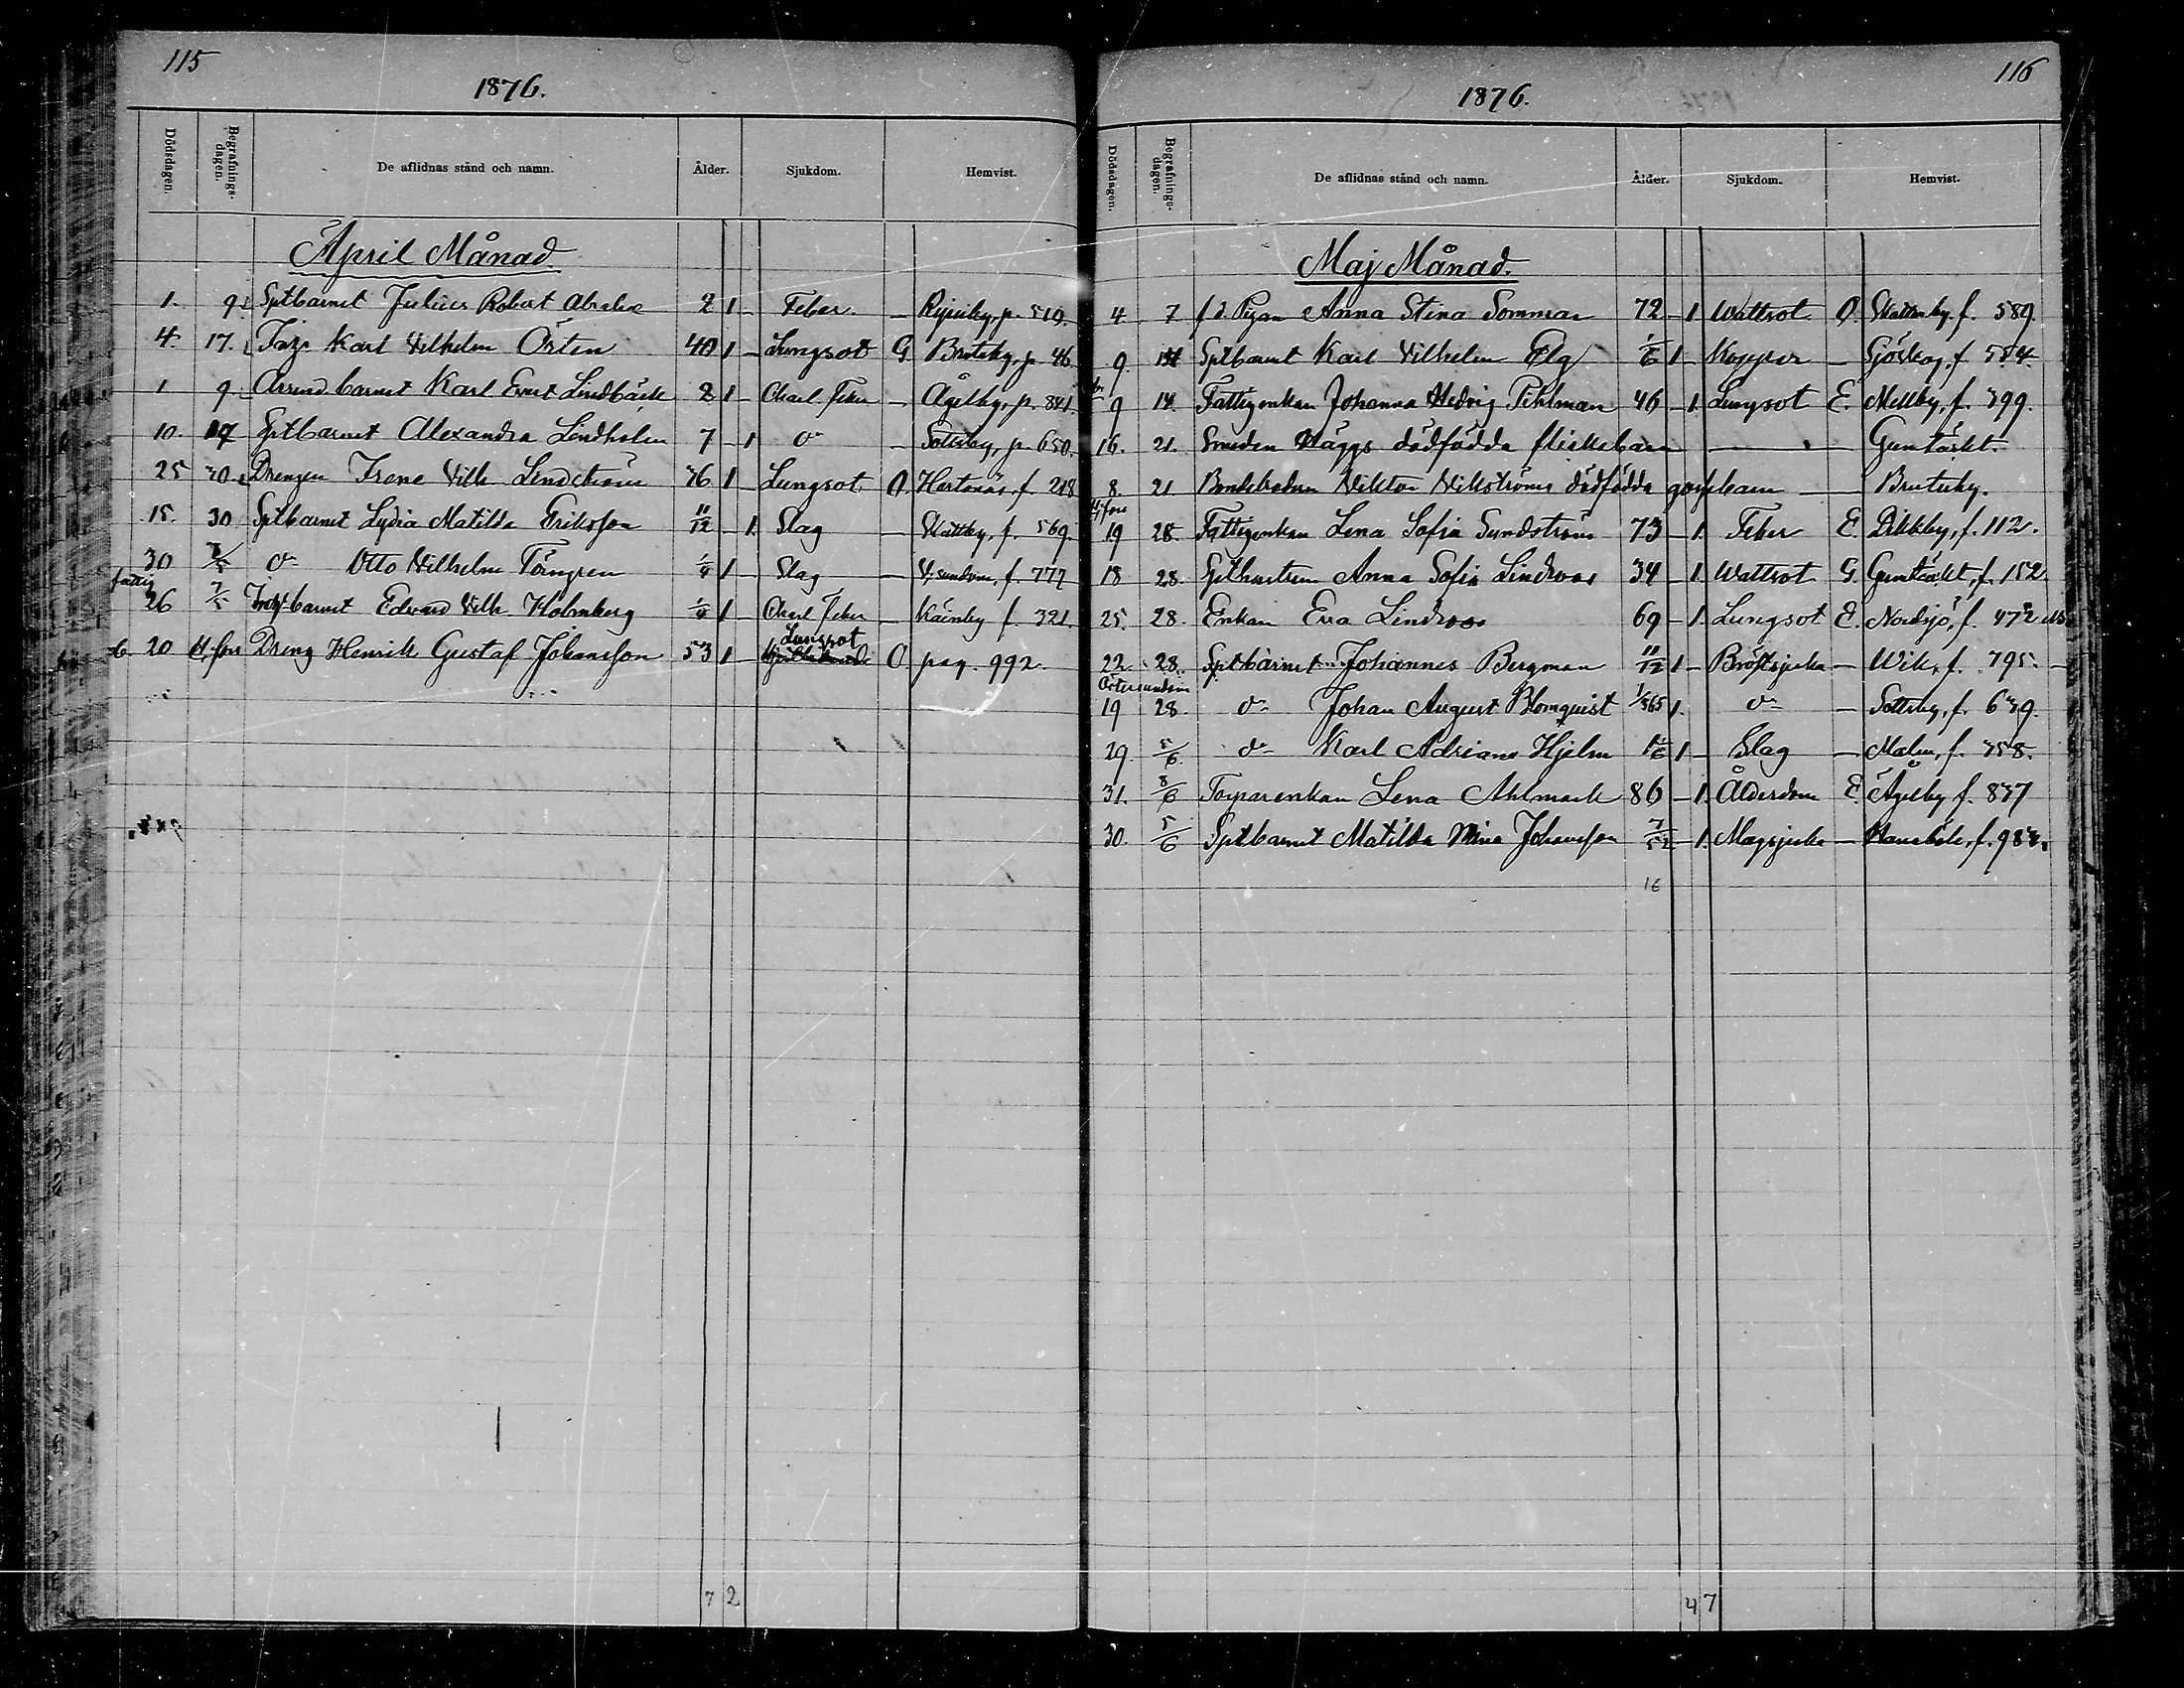 115
1876.
Dödsdagen. Begrafnings-dagen. De aflidnas stånd och namn. Ålder. Sjukdom. Hemvist.
April Månad.
1. 9. Sptbarnet Julius Robert 2 1 – Feber. – p. 510.
4. 17. Karl Vilhelm Östen 40 1 – Lungsot G. Brutuby, p. 46
1 9. Arrend.barnet Karl Evert Lindbäck 2 1 – Charl. Feber – Ågelby, p. 841.
10. 17 Sptbarnet Alexandra Lindholm 7 – 1 do – Sottsby, p. 650.
25 30. Drengen Frans Vilh. Lindström 36 1 – Lungsot O. Hertonäs, f. 218
15. 30 Sptbarnet Lydia Matilda Eriksson 11/12 – 1. Slag – Skattby, f. 569.
30 7/5 do Otto Vilhelm Törngren 1/4 1 – Slag – f. 777
26 7/5 Edvard Vilh. Holmberg 1/4 1 – Charl. Feber – f. 321.
20 H.fors Dreng Henrik Gustaf Johansson 53 1 – Lungsot O pag. 992.
7 2
116
1876.
Dödsdagen. Begrafnings-dagen. De aflidnas stånd och namn. Ålder. Sjukdom. Hemvist.
Maj Månad.
4. 7 f.d. Pigan Anna Stina Sommar 72 – 1 Wattsot O. Skattmby, f. 589.
9. 14 Sptbarnet Karl Vilhelm Elg 1/6 1 Koppor – Sjöskog, f. 554.
9 14. Fattigenkan Johanna Hedvig Pihlman 46 – 1. Lungsot E. Mellby, f. 399.
16. 21. Smeden Häggs dödfödda flickebarn – – Guntäckt.
8. 21 Viktor Vikströms dödfödda gossebarn – Brutuby.
H.fors
19 28. Fattigenkan Lena Sofia Sundström 73 – 1. Feber E. Dikkby, f. 112.
18 28. Anna Sofia Lindroos 34 – 1. Wattsot G. Guntäckt, f. 152.
25. 28. Enkan Eva Lindroos 69 – 1. Lungsot E. Nordsjö, f. 472
22. 28. Sptbarnet Johannes Bergman 11/12 1 – Bröstsjuka – Wik, f. 795. –
Östersundom
19 28. do Johan August Blomquist 1/365 1. do – Sottsby, f. 639.
29. 5/6 do Karl Adrian Hjelm 1/6 1 – Slag – Malm, f. 758.
31. 8/6 Torparenkan Lena Ahlmark 86 – 1. Ålderdom E. Ågelby f. 837
30. 5/6 Sptbarnet Matilda Mina Johansson 7/52 – 1. Magsjuka – Hanabole, f. 983.
16
4 7